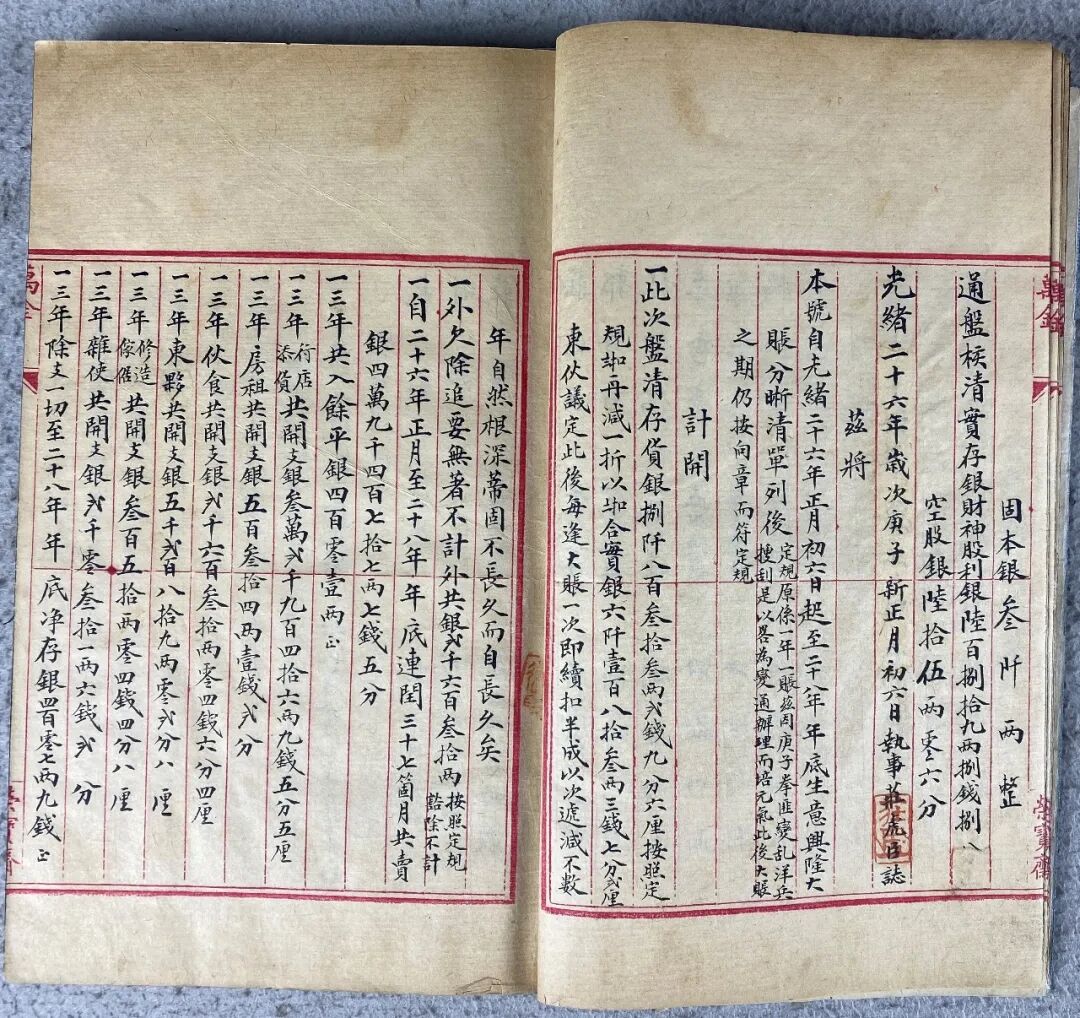 萬金
榮寶齋
固本銀叄阡兩整
通盤核清實存銀財神股利銀陸百捌拾九兩捌錢捌八
空股銀陸拾伍兩零六分
光緒二十六年歲次庚子新正月初六日執事莊虎臣誌
茲將
本號自光緒二十六年正月初六日起至二十八年年底生意興隆大
賬分晰清單列後定規原係一年一賬茲因庚子拳匪變乱洋兵
搜刮是以畧為變通辦理而培元氣此後大賬
之期仍按向章而符定規
計開
一此次盤清存貨銀捌阡八百叁拾叁兩弍錢九分六厘按照定
規毎再減一折以毎合實銀六阡壹百八拾叁兩三錢七分弍厘
東伙議定此後每逢大賬一次即續扣半成以次遞減不數
年自然根深蒂固不長久而自長久矣
一外欠除追要無著不計外共銀弍千六百叁拾兩按照定規
豁除不計
一自二十六年正月至二十八年年底連閏三十七箇月共賣
銀四萬九千四百七拾七兩七錢五分
一三年共入餘平銀四百零壹兩正
一三年行店
添貨共開支銀叁萬弍千九百四拾六兩九錢五分五厘
一三年房租共開支銀五百叁拾四兩壹錢弍分
一三年伙食共開支銀弍千六百叁拾兩零四錢六分四厘
一三年東夥共開支銀五千弍百八拾九兩零弍分八
一三年修造
傢俱共開支銀叁百五拾兩零四錢四分八厘
一三年雜使共開支銀弍千零叁拾一兩六錢弍分
一三年除支一切至二十八年年底净存銀四百零七兩九錢正
萬金
榮寶齋